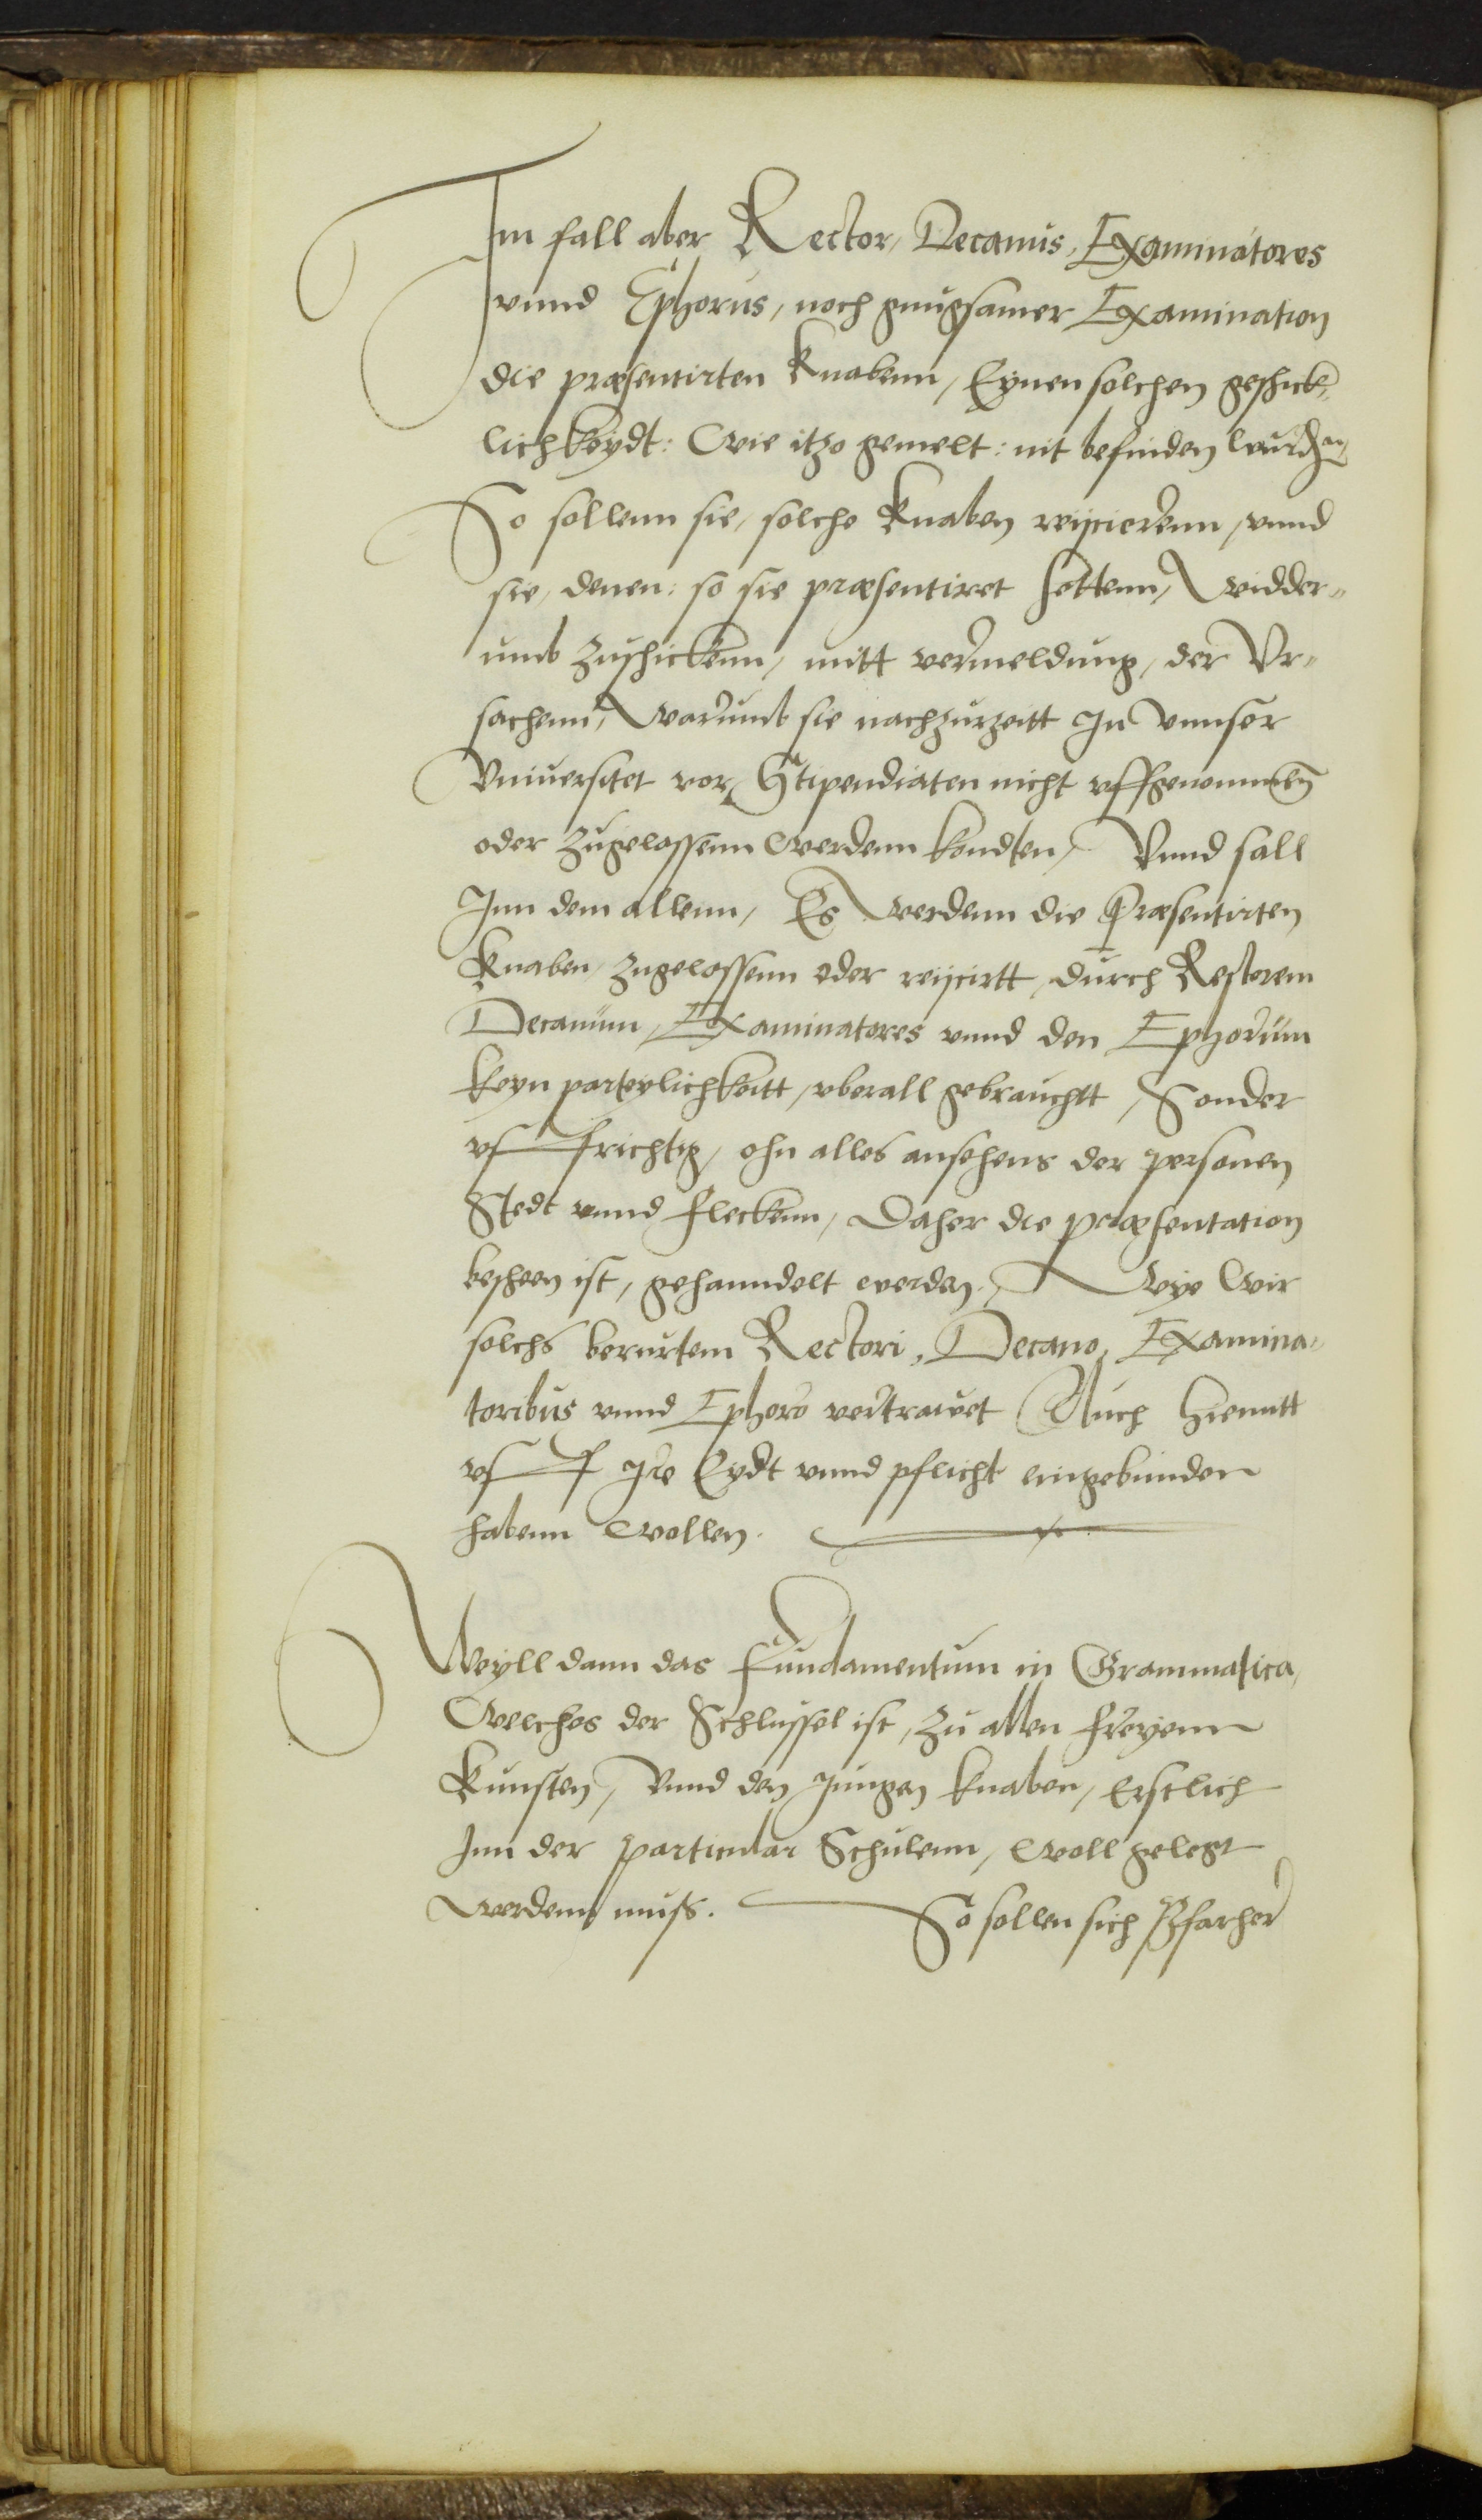 Im fall aber Rector, Decanus, Examinatores
vnnd Ephorus, noch gnugsamer Examination
die præsentirten Knabenn, Eynen solchen geschick„
lichkeydt: Wie itzo gemelt: nit befinden wurden,
So sollenn sie, solche Knaben reijcierenn, vnnd
sie, denen: so sie præsentiret hettenn, Widder„
umb zuschickenn, mitt vermeldung, der Vr„
sachenn, Warumb sie nachzurzeitt In vnnser
Vniuersitet vor Stipendiaten nicht vffgenommen
oder zugelassenn Werdenn kondten, Vnnd sall
Inn dem allenn, Es Werdenn die Præsentirten
Knaben, zugelassenn oder reijcirtt, durch Rectorem
Decanum, Examinatores vnnd den Ephorum
keyn parteylichkeitt, vberall gebrauchtt, Sonder
vffrichtig, ohn alles ansehens der personen
Stedt vnnd Fleckenn, Daher die præsentation
bescheen ist, gehanndelt werden, Wye Wir
solchs berurtem Rectori, Decano, Examina„
toribus vnnd Ephoro vertrawet Auch hiemitt
vff Ire Eydt vnnd pflicht eingebunden
habenn Wollen.
Weyll dann das Fundamentum in Grammatica,
Welches der Schlussel ist, zu allen freyenn
Kunsten, Vnnd den Jungen knaben, Erstlich
Inn der particular Schulenn, Woll gelegt
Werdenn muss. So sollen sich Pfarher